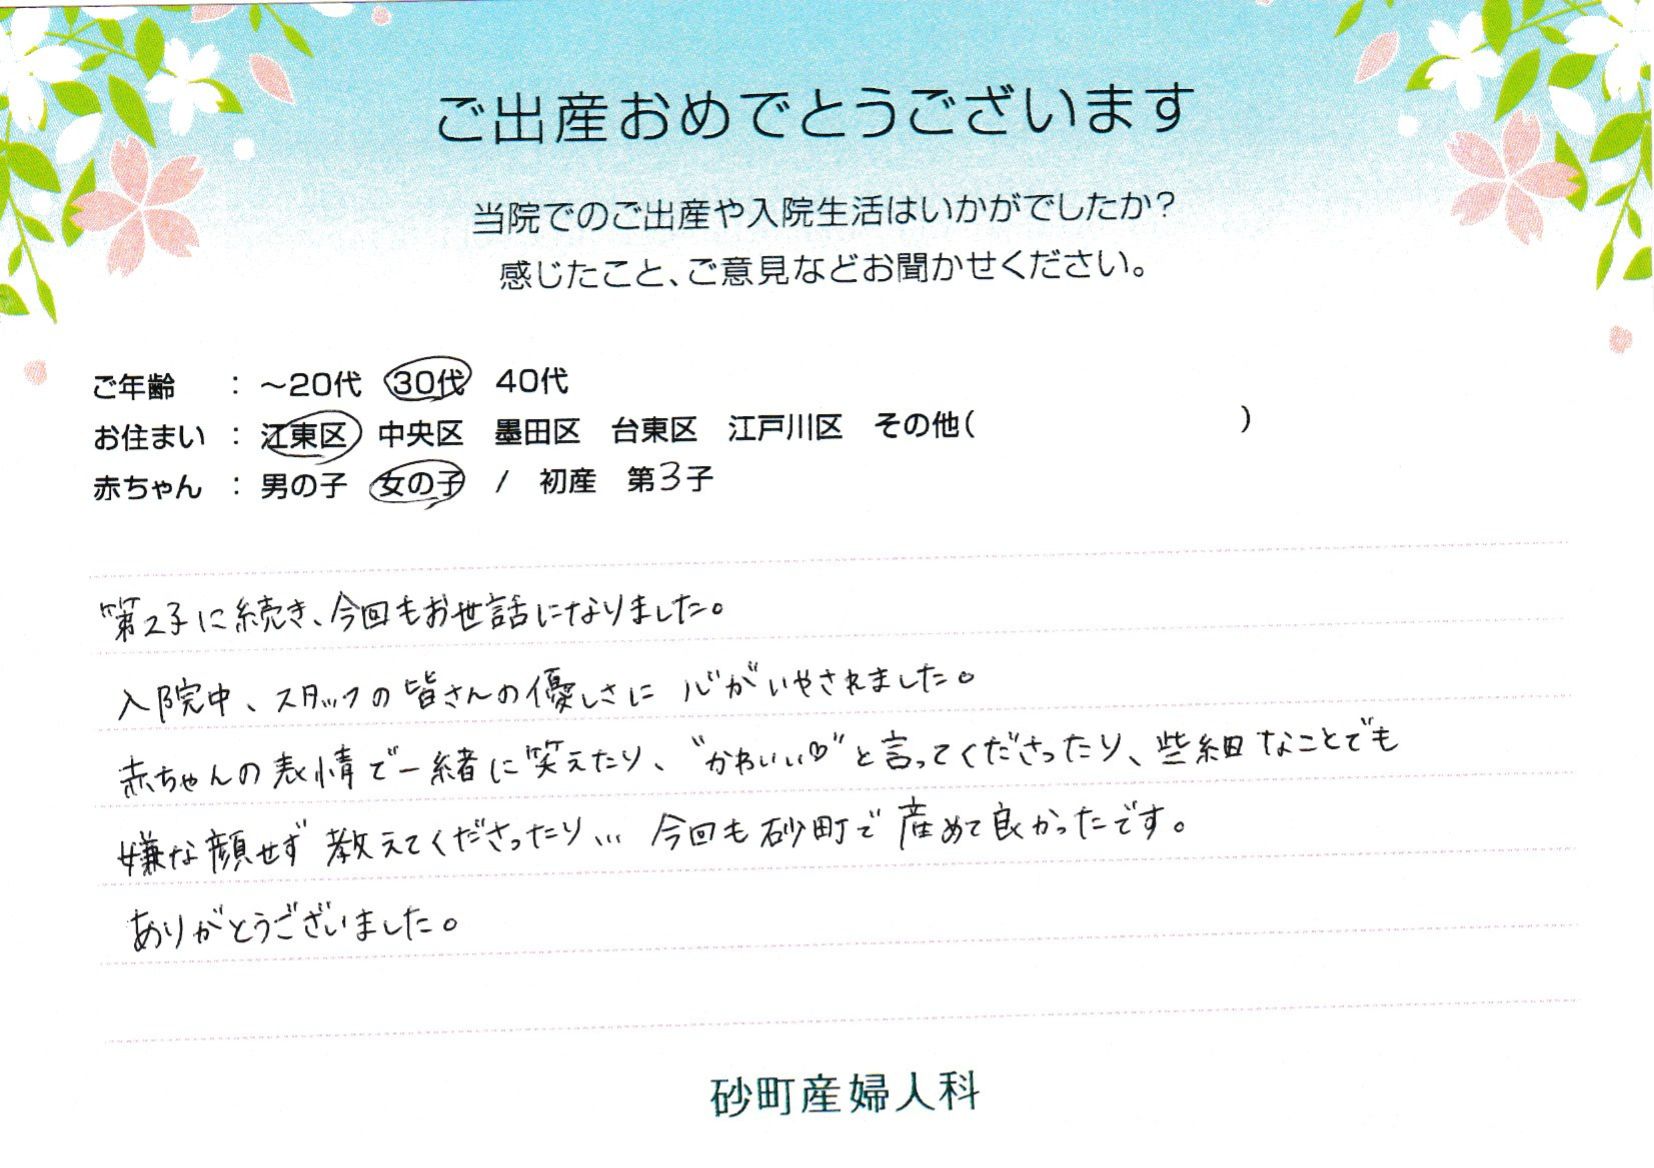 ご出産おめでとうございます
当院でのご出産や入院生活はいかがでしたか?
感じたこと、ご意見などお聞かせください。
ご年齢 : ～20代 30代 40代
お住まい : 江東区 中央区 墨田区 台東区 江戸川区 その他( )
赤ちゃん : 男の子 女の子 / 初産 第3子
第2子に続き、今回もお世話になりました。
入院中、スタッフの皆さんの優しさに心がいやされました。
赤ちゃんの表情で一緒に笑えたり、"かわいい♡"と言ってくださったり、些細なことでも
嫌な顔せず教えてくださったり… 今回も砂町で産めて良かったです。
ありがとうございました。
砂町産婦人科